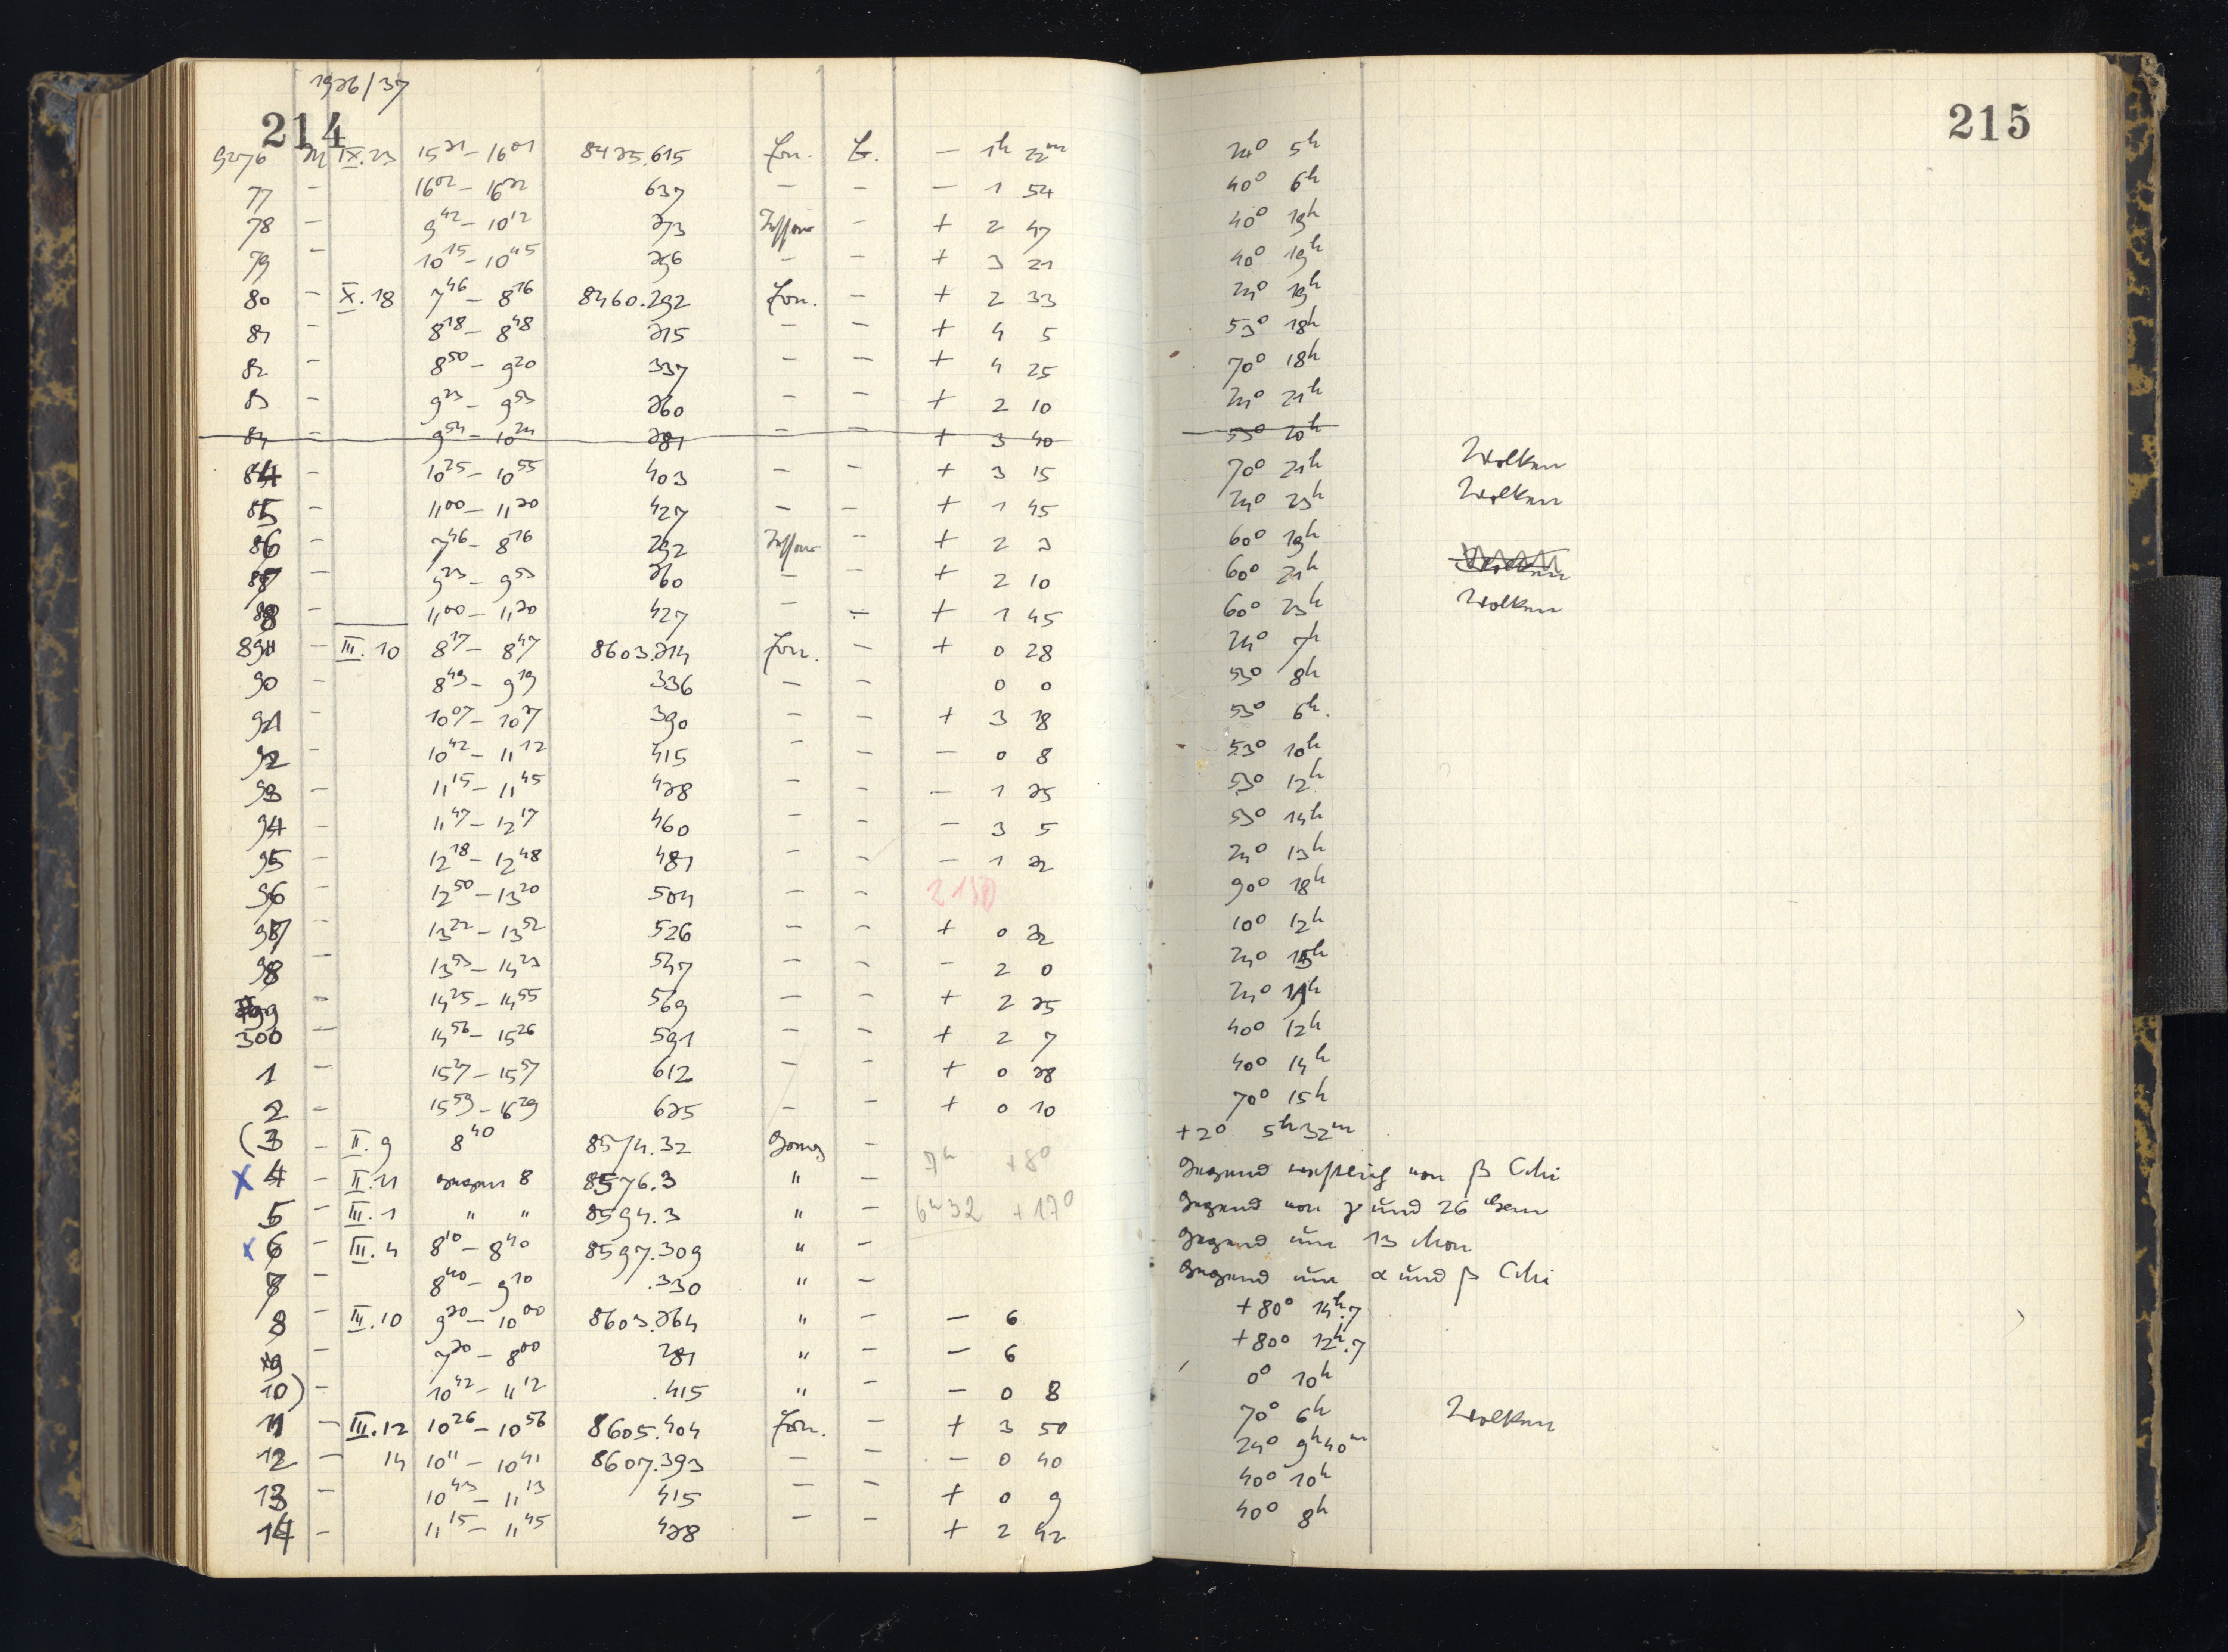 1936/37
214
215
9276 M IX.23 15 31 – 16 01 8435.615 Zon. E. – 1h 22m 24° 5h
77 – 16 02 – 16 32 637 – – – 1 54 40° 6h
78 – 9 42 – 10 12 373 – + 2 47 40° 19h
79 – 10 15 – 10 45 396 – – + 3 21 40° 19h
80 – X.18 7 46 – 8 16 8460.292 Zon. – + 2 33 24° 19h
81 – 8 18 – 8 48 315 – – + 4 5 53° 18h
82 – 8 50 – 9 20 337 – – + 4 25 70° 18h
83 – 9 23 – 9 53 360 – – + 2 10 24° 21h
84 – 9 54 – 10 24 381 – – + 3 40 53° 20h
84 – 10 25 – 10 55 403 – – + 3 15 70° 21h Wolken
85 – 11 00 – 11 30 427 – – + 1 45 24° 23h Wolken
86 – 7 46 – 8 16 292 – + 2 3 60° 19h
87 – 9 23 – 9 53 360 – – + 2 10 60° 21h
88 – 11 00 – 11 30 427 – – + 1 45 60° 23h Wolken
89 – III.10 8 17 – 8 47 8603.314 Zon. – + 0 28 24° 7h
90 – 8 49 – 9 19 336 – – 0 0 53° 8h
91 – 10 07 – 10 37 390 – – + 3 18 53° 6h.
92 – 10 42 – 11 12 415 – – – 0 8 53° 10h
93 – 11 15 – 11 45 438 – – – 1 35 53° 12h
94 – 11 47 – 12 17 460 – – – 3 5 53° 14h
95 – 12 18 – 12 48 481 – – – 1 32 24° 13h
96 – 12 50 – 13 20 504 – – 90° 18h
97 – 13 22 – 13 52 526 – – + 0 32 10° 12h
98 – 13 53 – 14 23 547 – – – 2 0 24° 15h
99 – 14 25 – 14 55 569 – – + 2 35 24°
300 – 14 56 – 15 26 591 – – + 2 7 40° 12h
1 – 15 27 – 15 57 612 – – + 0 38 40° 14h
2 – 15 59 – 16 29 635 – – + 0 10 70° 15h
(3 – II.9 8 40 8574.32 – +2° 5h32m
x 4 – II.11 gegen 8 8576.3 " – 7h +8° Gegend westlich von β CMi
5 – III.1 " " 8594.3 " – 6h32 +17° Gegend von γ und 26 Gem
x 6 – III.4 8 10 – 8 40 8597.309 " – Gegend um 13 Mon
7 – 8 40 – 9 10 .330 " – Gegend um α und β CMi
8 – III.10 9 30 – 10 00 8603.364 " – – 6 +80° 14h.7
9 – 7 30 – 8 00 281 " – – 6 +80° 12h.7
10) – 10 42 – 11 12 .415 " – – 0 8 0° 10h
11 – III.12 10 26 – 10 56 8605.404 Zon. – + 3 50 70° 6h Wolken
12 – 14 10 11 – 10 41 8607.393 – – – 0 40 24° 9h40m
13 – 10 43 – 11 13 415 – – + 0 9 40° 10h
14 – 11 15 – 11 45 438 – – + 2 42 40° 8h